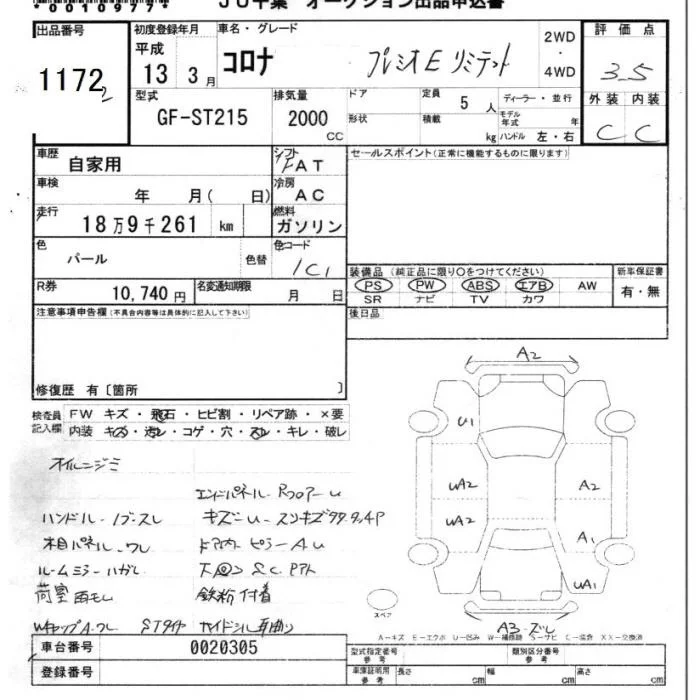 *0010977*
JU千葉 オークション出品申込書
出品番号
1172 2
初度登録年月
平成
13 3月
車名・グレード
コロナ プレミオE リミテット
2WD
・
4WD
評価点
3.5
外装 内装
C C
型式
GF-ST215
排気量
2000 CC
ドア
形状
定員 5 人
積載 kg
ディーラー・並行
モデル年式 年
ハンドル 左・右
車歴
自家用
シフト
FAT
セールスポイント(正常に機能するものに限ります)
車検
年 月( 日)
冷房
AC
走行
18万9千261 km
燃料
ガソリン
色
パール
色替
色コード
1C1
装備品(純正品に限り○をつけてください)
PS PW ABS エアB AW
SR ナビ TV カワ
新車保証書
有・無
R券
10,740 円
名変通知期限
月 日
後日品
注意事項申告欄(不具合内容等は具体的に記入して下さい)
修復歴 有〔箇所 〕
検査員記入欄
FW キズ・飛石・ヒビ割・リペア跡・×要
内装 キズ・汚レ・コゲ・穴・スレ・キレ・破レ
オイルニジミ
エンドパネル・Rフロアーu
ハンドル・ノブスレ
キズ
木目パネル・ワレ
ドア内ピラーAu
ルームミラーハガレ
荷室
鉄粉付着
STタイヤ
サイドシル耳曲り
A2
U1
UA2
A2
UA2
A1
UA1
A3 ズレ
スペア
A-キズ E-エクボ U-凹み W-補修跡 S-サビ C-腐食 XX-交換済
車台番号
0020305
型式指定番号
参考
類別区分番号
参考
登録番号
車庫証明用
参考
長さ cm 幅 cm 高さ cm